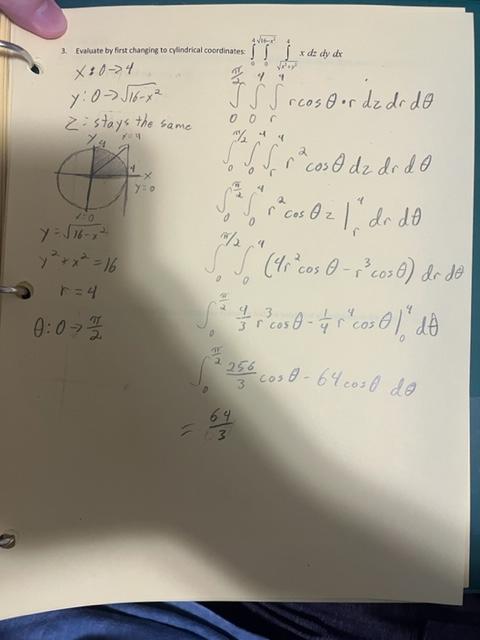 3. Evaluate by first changing to cylindrical coordinates: ∫₀⁴ ∫₀^√(16-x²) ∫_√(x²+y²)^4 x dz dy dx
x: 0→4
y: 0→√(16-x²)
z: stays the same
y x=4
4
4 x
y=0
x=0
y=√(16-x²)
y²+x²=16
r=4
θ: 0→π/2
∫₀^π/2 ∫₀⁴ ∫ᵣ⁴ r cos θ • r dz dr dθ
∫₀^π/2 ∫₀⁴ ∫ᵣ⁴ r² cos θ dz dr dθ
∫₀^π/2 ∫₀⁴ r² cos θ z |ᵣ⁴ dr dθ
∫₀^π/2 ∫₀⁴ (4r² cos θ - r³ cos θ) dr dθ
∫₀^π/2 4/3 r³ cos θ - 1/4 r⁴ cos θ |₀⁴ dθ
∫₀^π/2 256/3 cos θ - 64 cos θ dθ
= 64/3